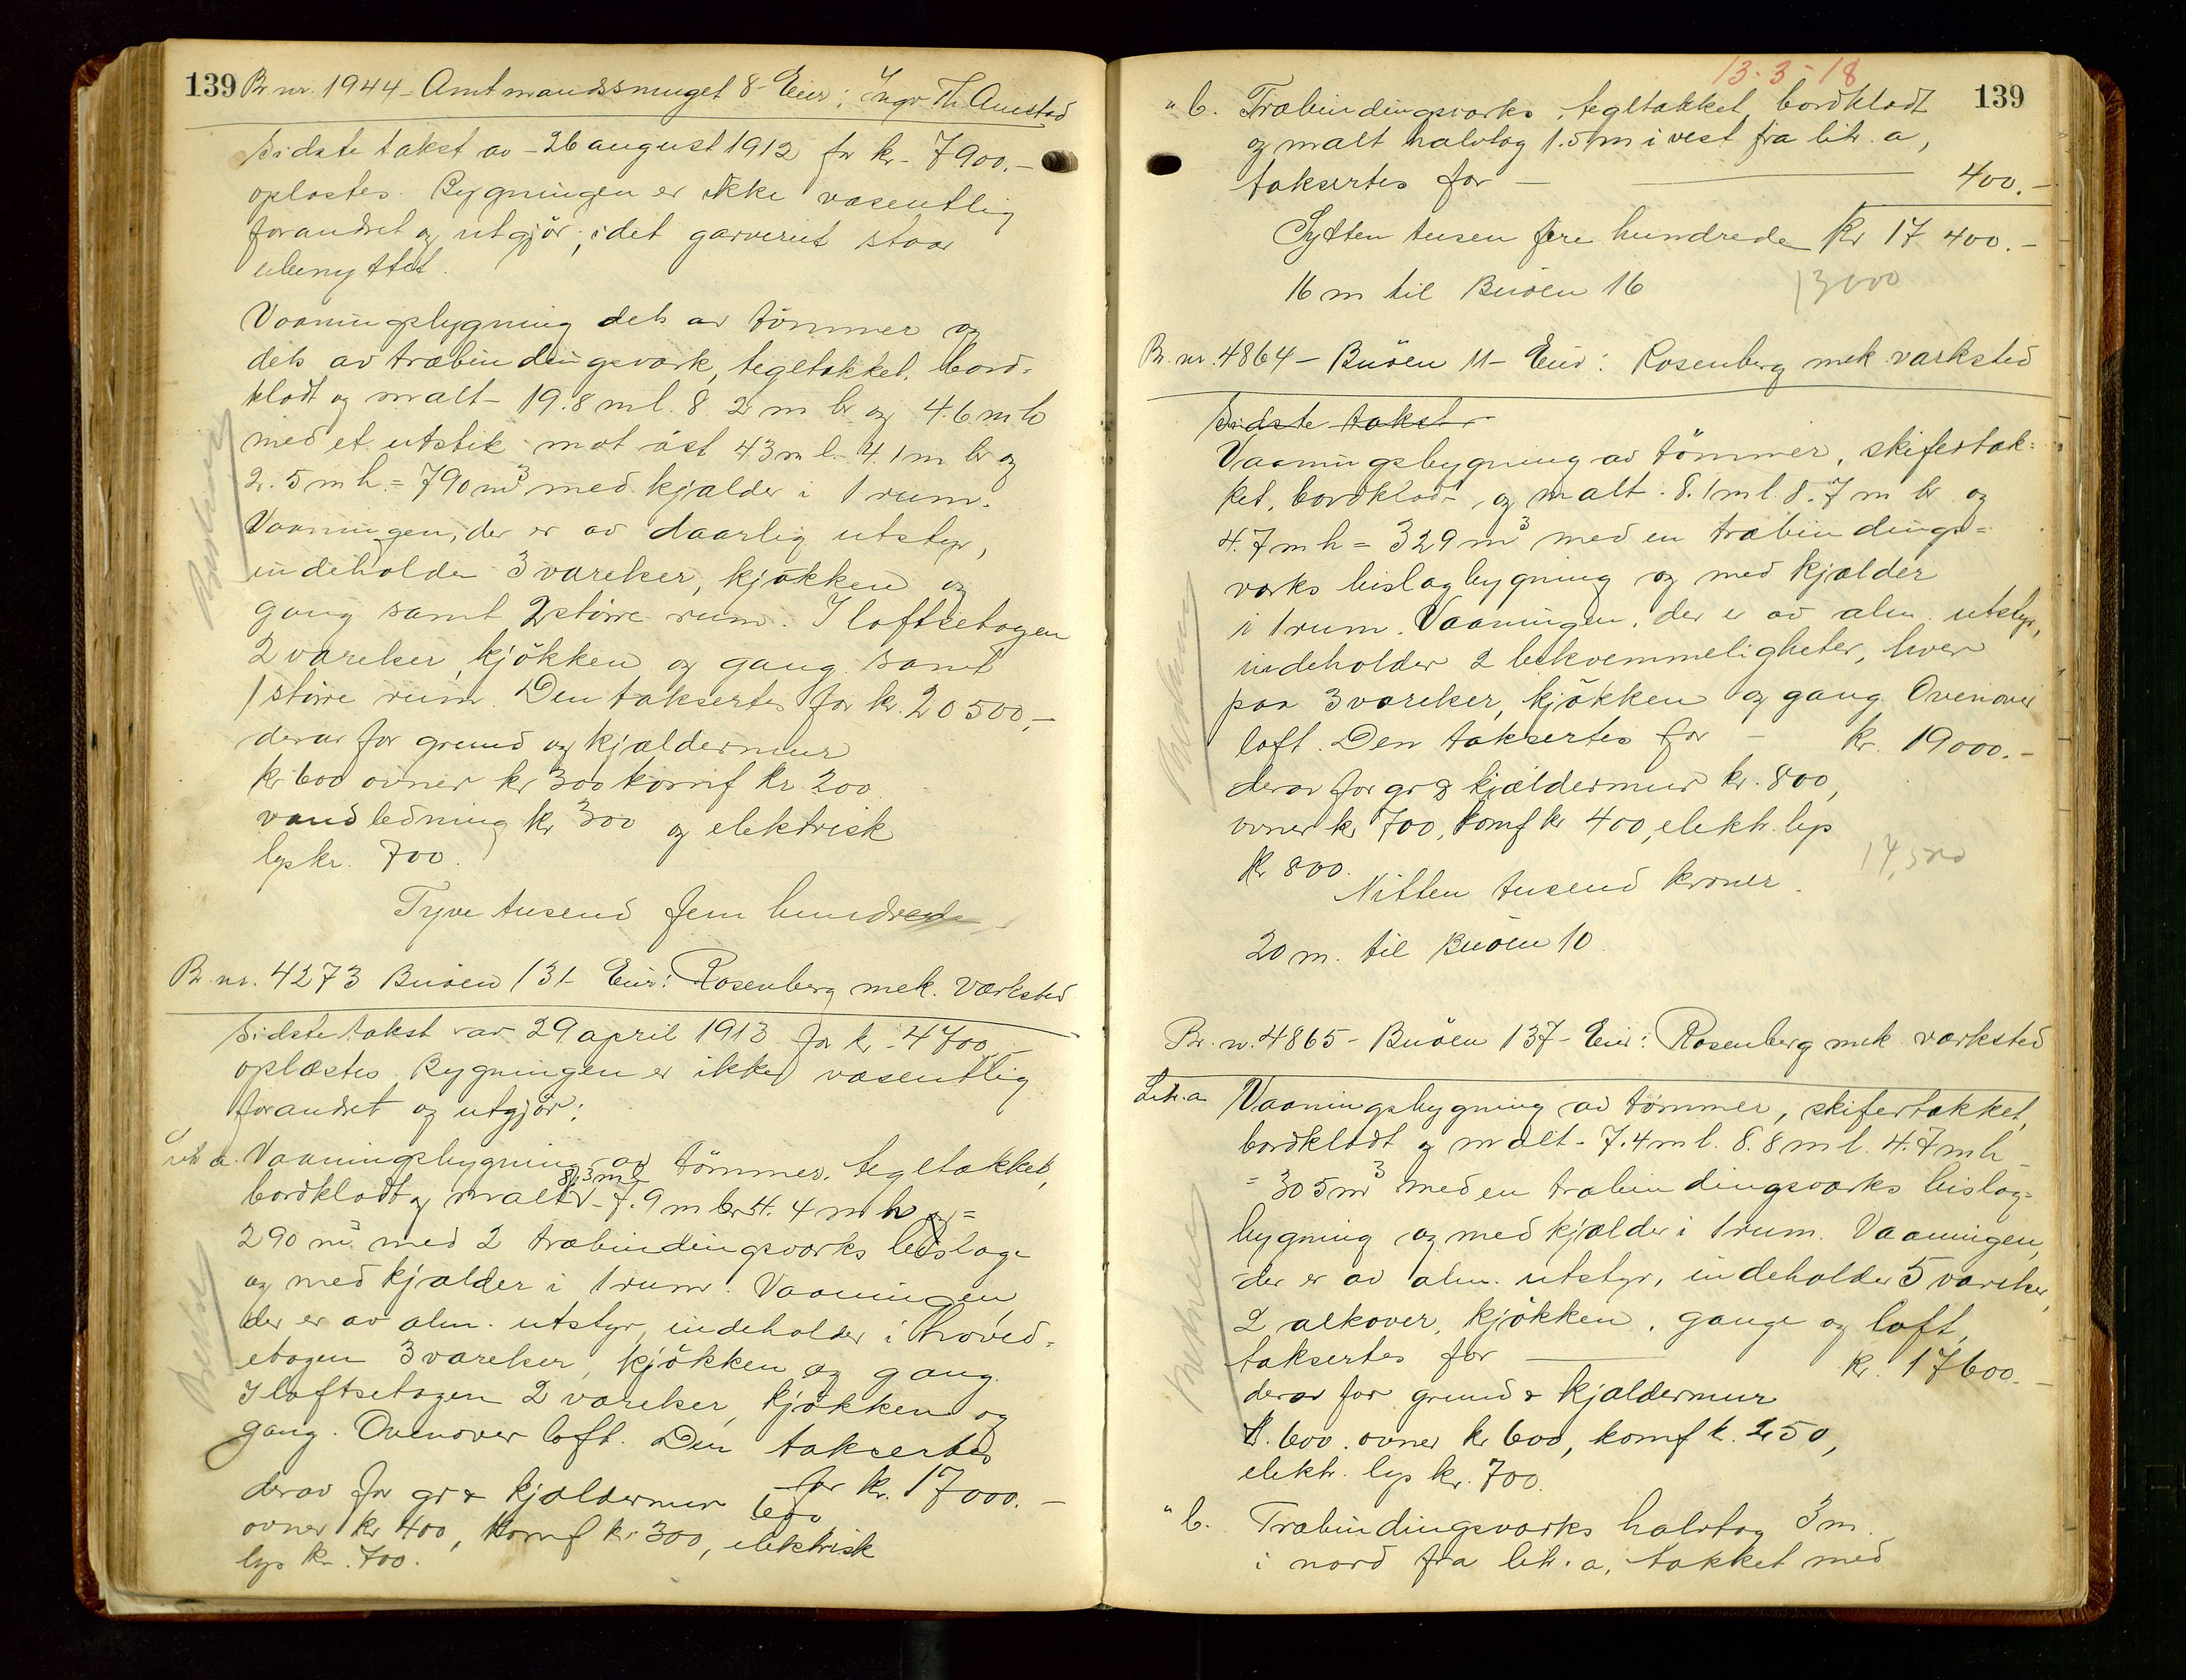 139 Br. nr. 1944 - Amtmandssmuget 8 - Eier: Ingv. Th. Amstad
Sidste takst av - 26 august 1912 for kr. 7900.-
oplæstes. Bygningen er ikke væsentlig
forandret og utgjör; idet garveriet staar
ubenyttet.
Vaaningsbygning dels av tömmer og
dels av træbindingsverk, tegltækket, bord-
klædt og malt - 19.8 m l. 8.2 m br og 4.6 m h
med et utstik mot öst 4.3 m l. 4.1 m br og
2.5 m h. = 790 m³ med kjælder i 1 rum.
Vaaningen, der er av daarlig utstyr,
indeholder 3 værelser, kjökken og
gang samt 2 större rum. I loftsetagen
2 værelser, kjökken og gang samt
1 större rum. Den taksertes for kr. 20500,-
derav for grund og kjældermur
kr 600 ovner kr 300 komf kr. 200
vandledning kr 300 og elektrisk
lys kr. 700.
Tyve tusend fem hundrede
Br. nr. 4273 Buöen 131 - Eier: Rosenberg mek. Værksted
Sidste takst var 29 april 1913 for kr. 4700,-
oplæstes. Bygningen er ikke væsentlig
forandret og utgjör:
Litr a. Vaaningsbygning av tömmer, tegltækket,
8.3 m l
bordklædt og malt - 7.9 m br 4.4 m h og =
290 m³ med 2 træbindingsværks bislage
og med kjælder i 1 rum. Vaaningen,
der er av alm. utstyr, indeholder i hoved-
etagen 3 værelser, kjökken og gang.
I loftsetagen 2 værelser, kjökken og
gang. Ovenover loft. Den taksertes
for kr. 17000.-
derav for gr & kjældermur 600
ovner kr 400, komf kr. 300, elektrisk
lys kr. 700.
13-3-18
139
" b. Træbindingsværks, tegltækket, bordklædt
og malt halvtag 1.5 m i vest fra litr. a,
taksertes for - 400.-
Sytten tusen fire hundrede kr 17 400.-
16 m til Buöen 16
13000
Br. nr. 4864 - Buöen 11 - Eier: Rosenberg mek. værksted
Sidste takst
Vaaningsbygning av tömmer, skifertæk-
ket, bordklædt og malt. 8.1 m l. 8.7 m br og
4.7 m h = 329 m³ med en træbindings-
værks bislagbygning og med kjælder
i 1 rum. Vaaningen, der er av alm. utstyr,
indeholder 2 bekvemmeligheter, hver
paa 3 værelser, kjökken og gang. Ovenover
loft. Den taksertes for - kr. 19000.-
derav for gr & kjældermur kr. 800,
ovner kr 700, komf kr 400, elektr. lys
kr 800.
14,500
Nitten tusend kroner.
20 m. til Buöen 10
Br. nr. 4865 - Buöen 137 - Eier: Rosenberg mek værksted
Litr. a Vaaningsbygning av tömmer, skifertækket,
bordklædt og malt - 7.4 m l. 8.8 m l. 4.7 m h
= 305 m³ med en træbindingsværks bislag-
bygning og med kjælder i 1 rum. Vaaningen,
der er av alm. utstyr, indeholder 5 værelser,
2 alkover, kjökken, gange og loft,
taksertes for kr. 17600.-
derav for grund & kjældermur
kr. 600. ovner kr 600, komf k. 250,
elektr. lys kr. 700.
" b. Træbindingsværks halvtag 3 m.
i nord fra litr. a, tækket med